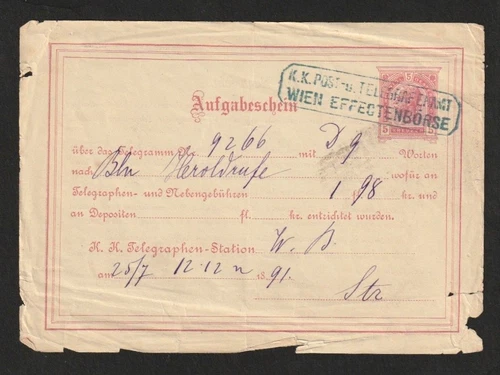 5 5
K.K. POST- u. TELEGRAFENAMT
WIEN EFFECTENBÖRSE
5 5
Aufgabeschein
über das Telegramm Nr. 9266 mit D 9 Worten
nach Bln Heroldrufe wofür an
Telegraphen- und Nebengebühren 1 98 kr. und
an Depositen fl. kr. entrichtet wurden.
K. K. Telegraphen-Station W. B.
am 25/7 12.12 n 1891.
Str